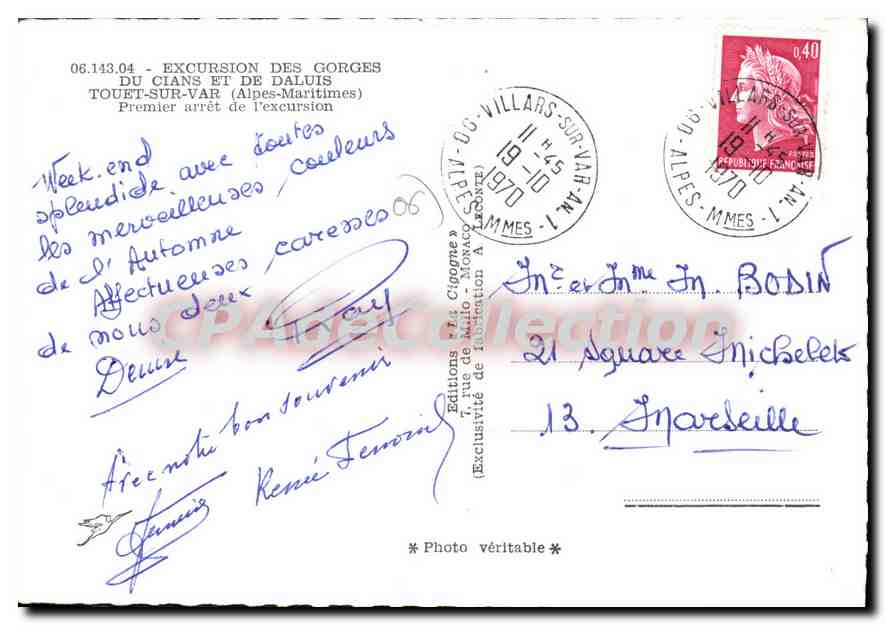 06.143.04 - EXCURSION DES GORGES
DU CIANS ET DE DALUIS
TOUET-SUR-VAR (Alpes-Maritimes)
Premier arrêt de l'excursion
Week-end
splendide avec toutes
les merveilleuses couleurs
de l'Automne
Affectueuses caresses
de nous deux
Denise
Avec notre bon souvenir
Renée
06
Editions « La Cigogne »
7, rue de Millo - MONACO
(Exclusivité de fabrication A. LECONTE)
06-VILLARS-SUR-VAR-AN. 1 - ALPES-MMES -
11 H 45
19 -10
1970
0,40
POSTES
REPUBLIQUE FRANÇAISE
06-VILLARS-SUR-VAR-AN. 1 - ALPES-MMES -
11 H 45
19 -10
1970
Mr et Mme M. BODIN
21 square Michelet
13. Marseille
* Photo véritable *
CPA de Collection